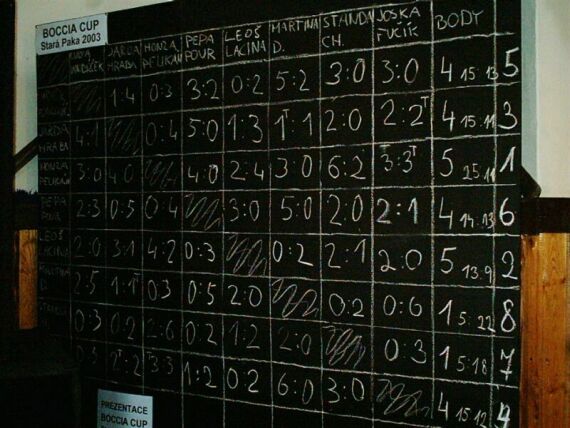 BOCCIA CUP
Stará Paka 2003
JARDA HRABA HONZA PELIKÁN PEPA POUR LEOŠ LACINA MARTINA D. STANDA CH. JOSKA FUCÍK BODY
1:4 0:3 3:2 0:2 5:2 3:0 3:0 4 15:13 5
4:1 0:4 5:0 1:3 1:1 2:0 2:2T 4 15:11 3
JARDA HRABA
HONZA PELIKÁN 3:0 4:0 4:0 2:4 3:0 6:2 3:3T 5 25:11 1
PEPA POUR 2:3 0:5 0:4 3:0 5:0 2:0 2:1 4 14:13 6
LEOŠ LACINA 2:0 3:1 4:2 0:3 0:2 2:1 2:0 5 13:9 2
2:5 1:1T 0:3 0:5 2:0 0:2 0:6 1 5:22 8
0:3 0:2 2:6 0:2 1:2 2:0 0:3 1 5:18 7
0:3 2T:2 3:3 1:2 0:2 6:0 3:0 4 15:12
PREZENTACE
BOCCIA CUP